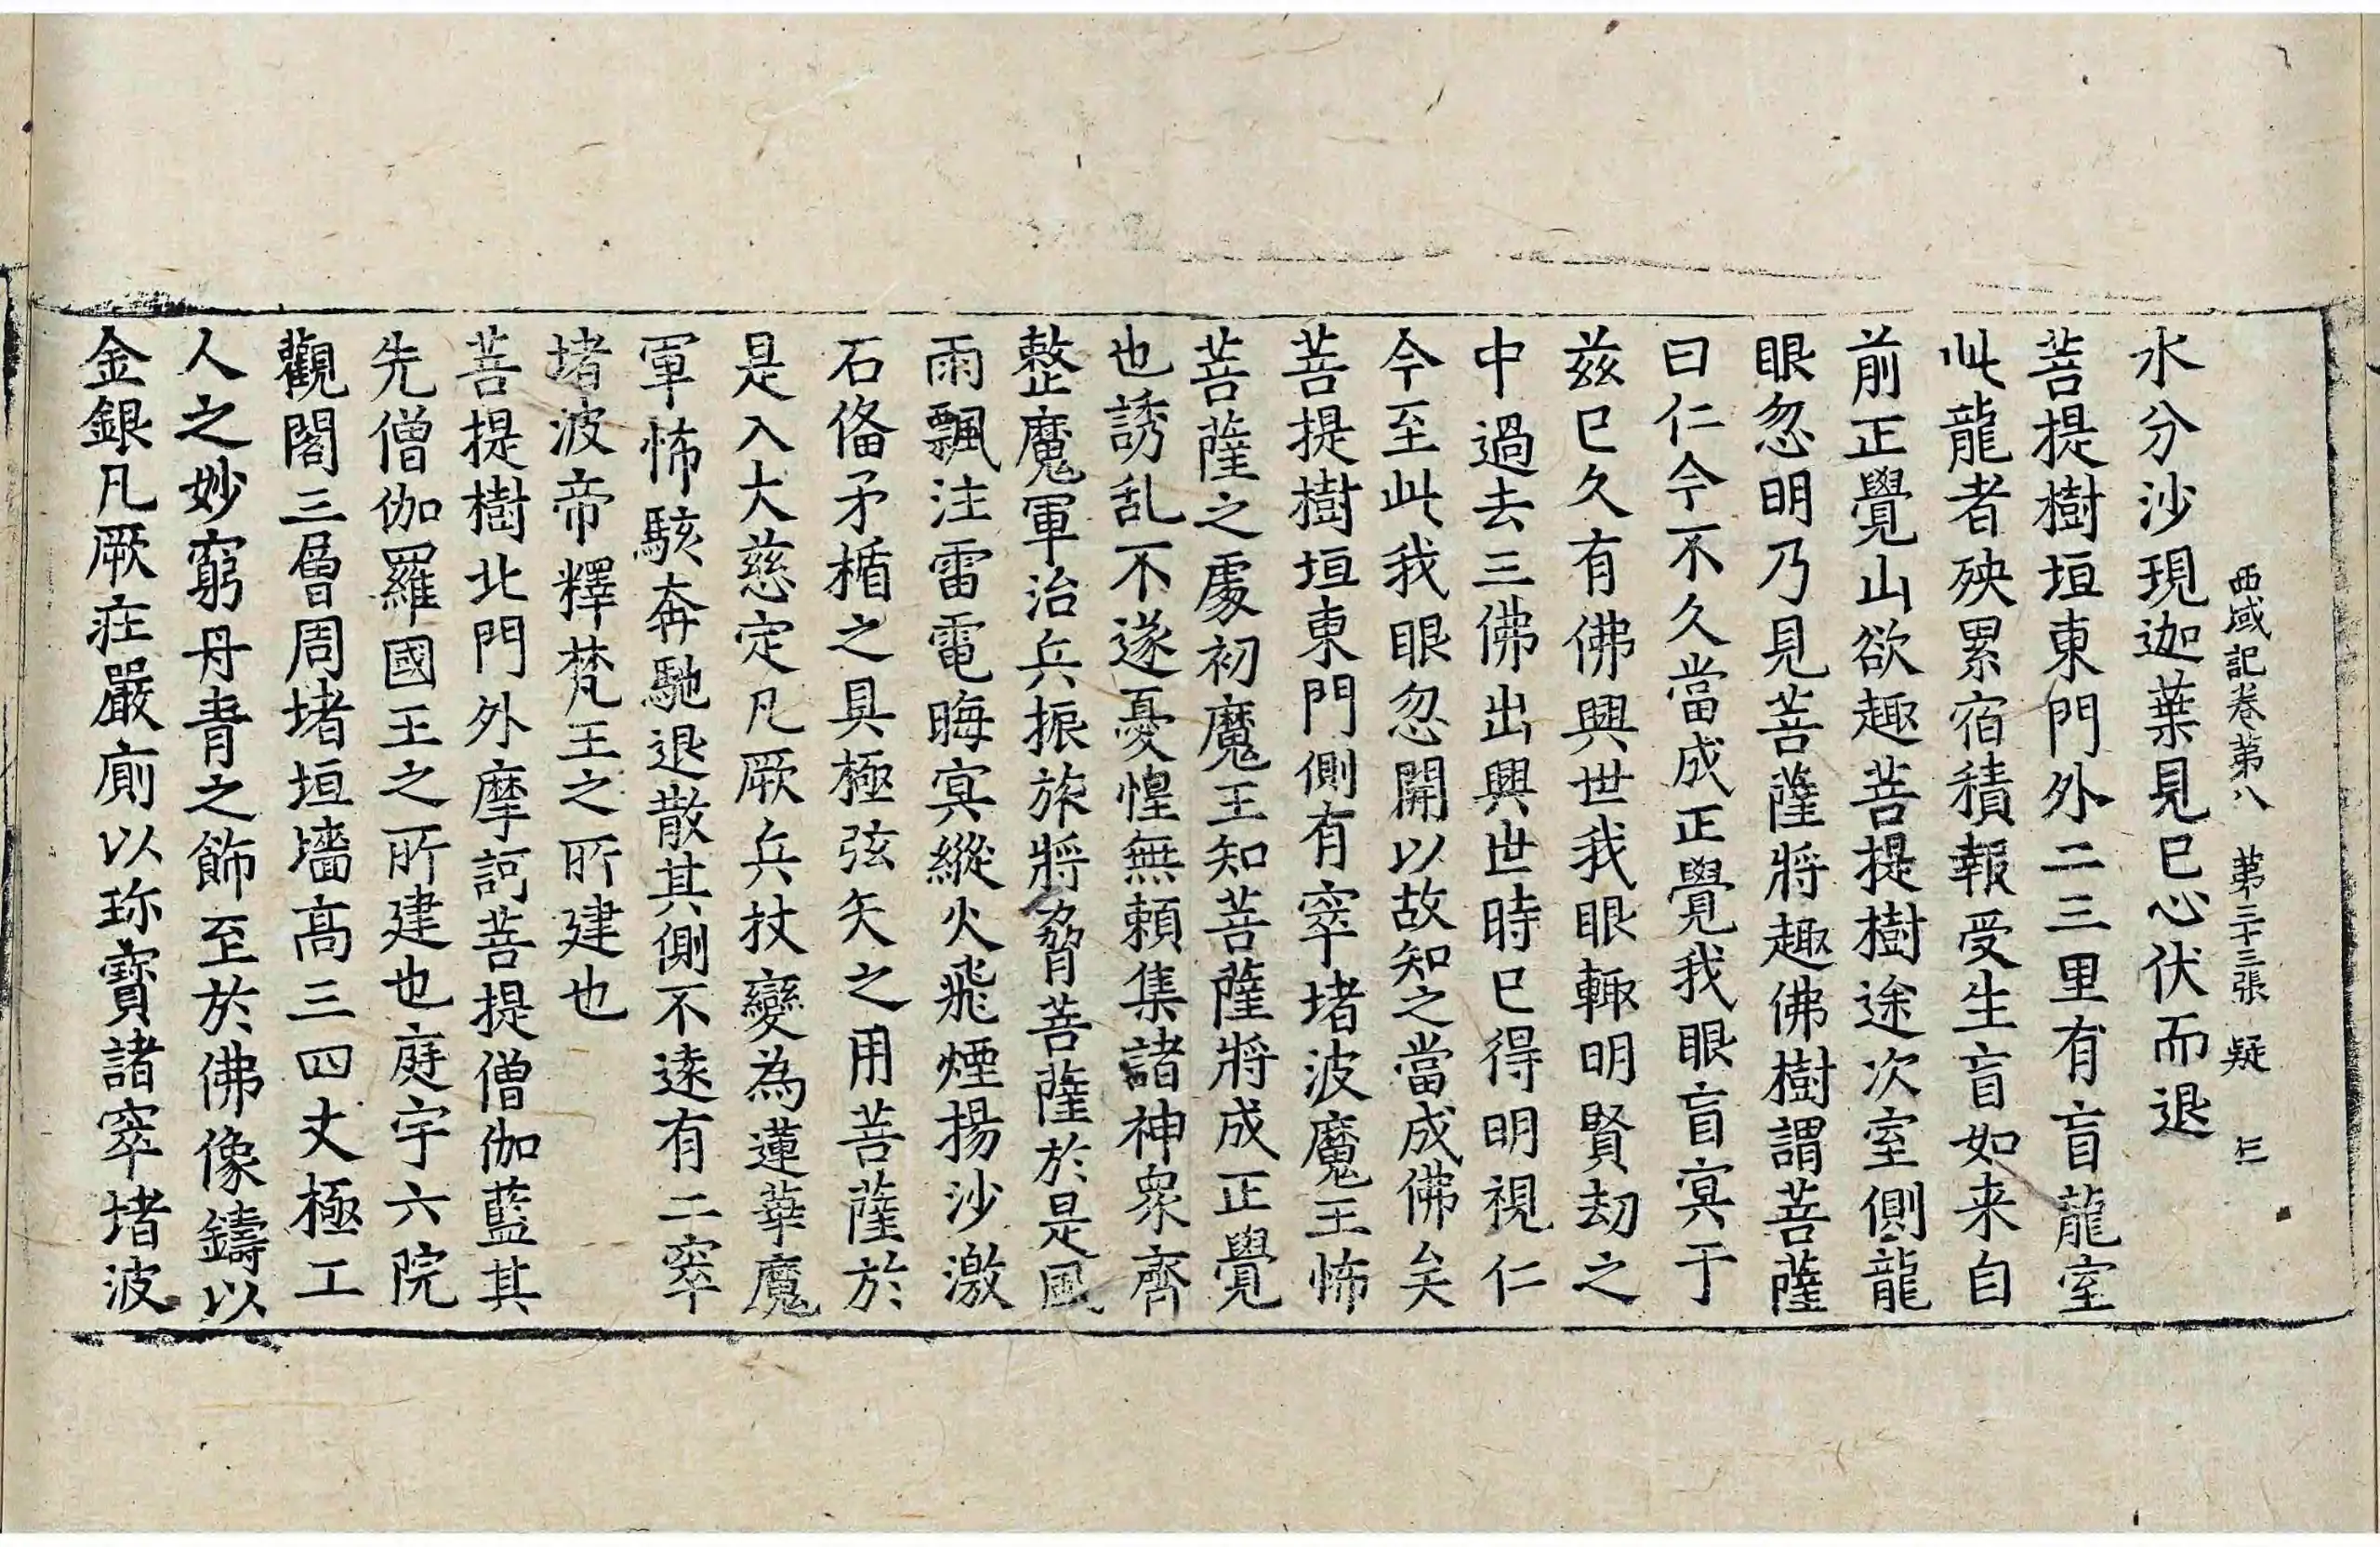 西域記卷第八　第二十三張　疑
水分沙現迦葉見已心伏而退
菩提樹垣東門外二三里有盲龍室
此龍者殃累宿積報受生盲如来自
前正覺山欲趣菩提樹途次室側龍
眼忽明乃見菩薩將趣佛樹謂菩薩
曰仁今不久當成正覺我眼盲冥于
兹已久有佛興世我眼輙明賢劫之
中過去三佛出興世時已得明視仁
今至此我眼忽開以故知之當成佛矣
菩提樹垣東門側有窣堵波魔王怖
菩薩之處初魔王知菩薩將成正覺
也誘乱不遂憂惶無賴集諸神眾齊
整魔軍治兵振旅將脅菩薩於是風
雨飄注雷電晦冥縱火飛煙揚沙激
石俻矛楯之具極弦矢之用菩薩於
是入大慈定凡厥兵杖變為蓮華魔
軍怖駭奔馳退散其側不遠有二窣
堵波帝釋梵王之所建也
菩提樹北門外摩訶菩提僧伽藍其
先僧伽羅國王之所建也庭宇六院
觀閣三層周堵垣墻高三四丈極工
人之妙窮丹青之飾至於佛像鑄以
金銀凡厥莊嚴廁以珎寶諸窣堵波